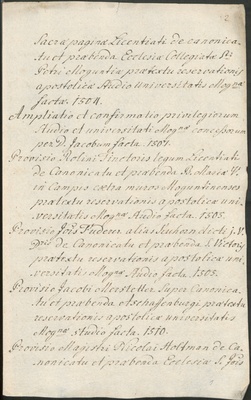 Sacræ paginæ Licentiati de canonica-
tu et præbenda Ecclesiæ Collegiatæ Sti
Petri Moguntiæ prætextu reservationis
apostolicæ studio universitatis Mognæ
factæ. 1504.
Ampliatio et confirmatio privilegiorum
studio et universitati Mognæ concessorum
per D. Jacobum facta. 1507.
Provisio legum Licentiati
de Canonicatu et præbenda B. Mariæ V.
in Campis extra muros Moguntinenses
prætextu reservationis apostolicæ uni-
versitatis Mognæ studio facta. 1505.
Provisio Jois alias dicti j. V.
Dris de Canonicatu et præbenda S. Victoris
prætextu reservationis apostolicæ uni-
versitati Mognæ studio facta. 1505.
Provisio Jacobi super Canonica-
tu et præbenda Aschaffenburgi prætextu
reservationis apostolicæ universitatis
Mognæ studio facta. 1510.
Provisio Magistri Nicolai Holtman de Ca-
nonicatu et præbenda Ecclesiæ S.